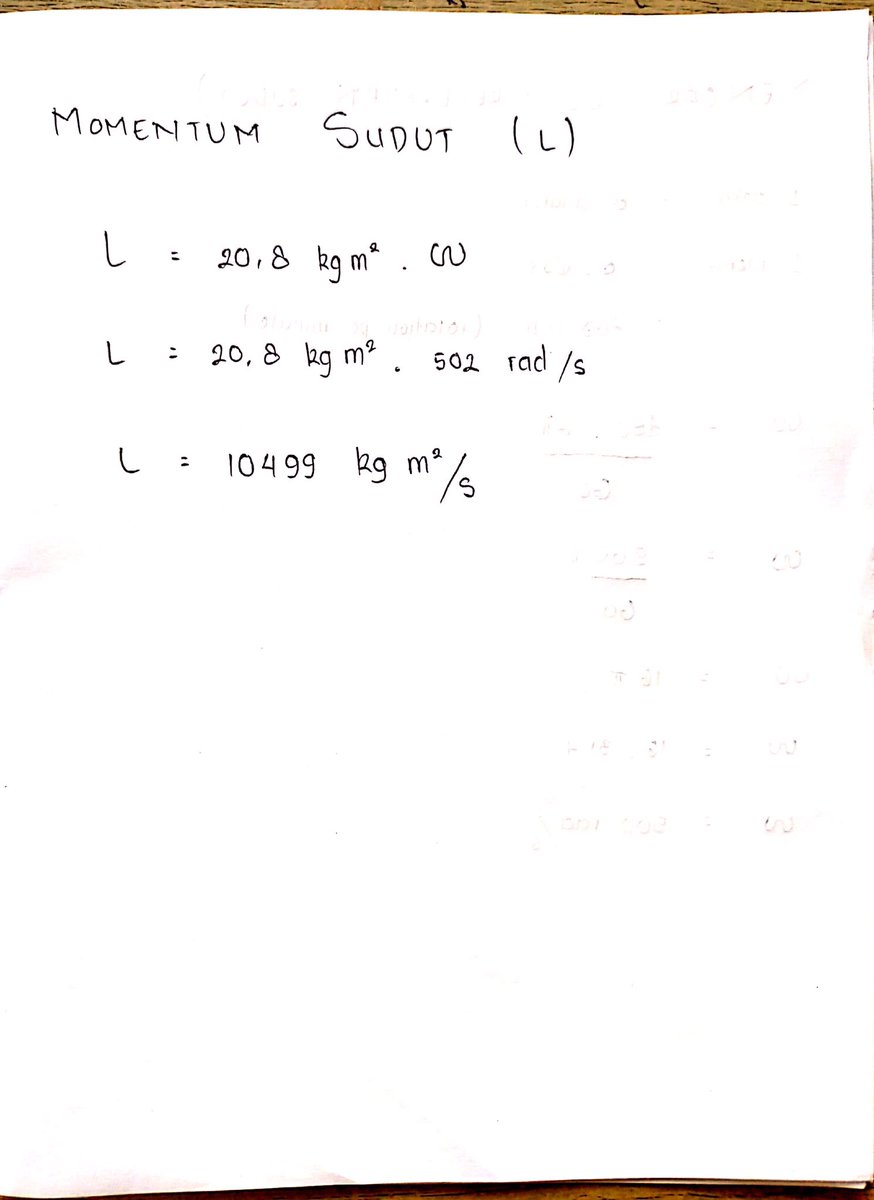 MOMENTUM SUDUT (L)
L = 20,8 kg m² . ω
L = 20,8 kg m² . 502 rad/s
L = 10499 kg m²/s